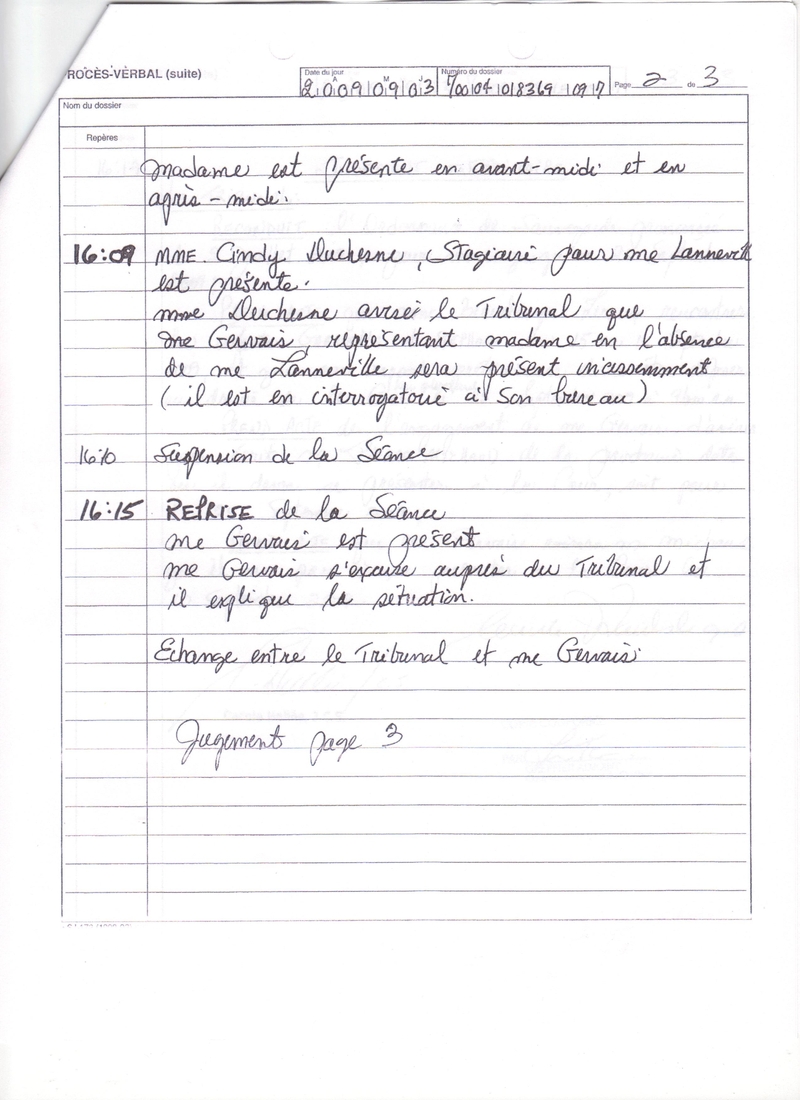 ROCÈS-VERBAL (suite)
Date du jour
A M J
2009 09 03
Numéro du dossier
Page 2 de 3
Nom du dossier
Repères
Madame est présente en avant-midi et en
après-midi.
16:09 MME. Cindy Duchesne, Stagiaire pour me Lanneville
est présente.
mme Duchesne avise le Tribunal que
me Gervais, représentant madame en l'absence
de me Lanneville sera présent incessemment
(il est en interrogatoire à son bureau)
16:10 Suspension de la Séance
16:15 REPRISE de la Séance
me Gervais est présent
me Gervais s'excuse auprès du Tribunal et
il explique la situation.
Echange entre le Tribunal et me Gervais.
Jugement page 3